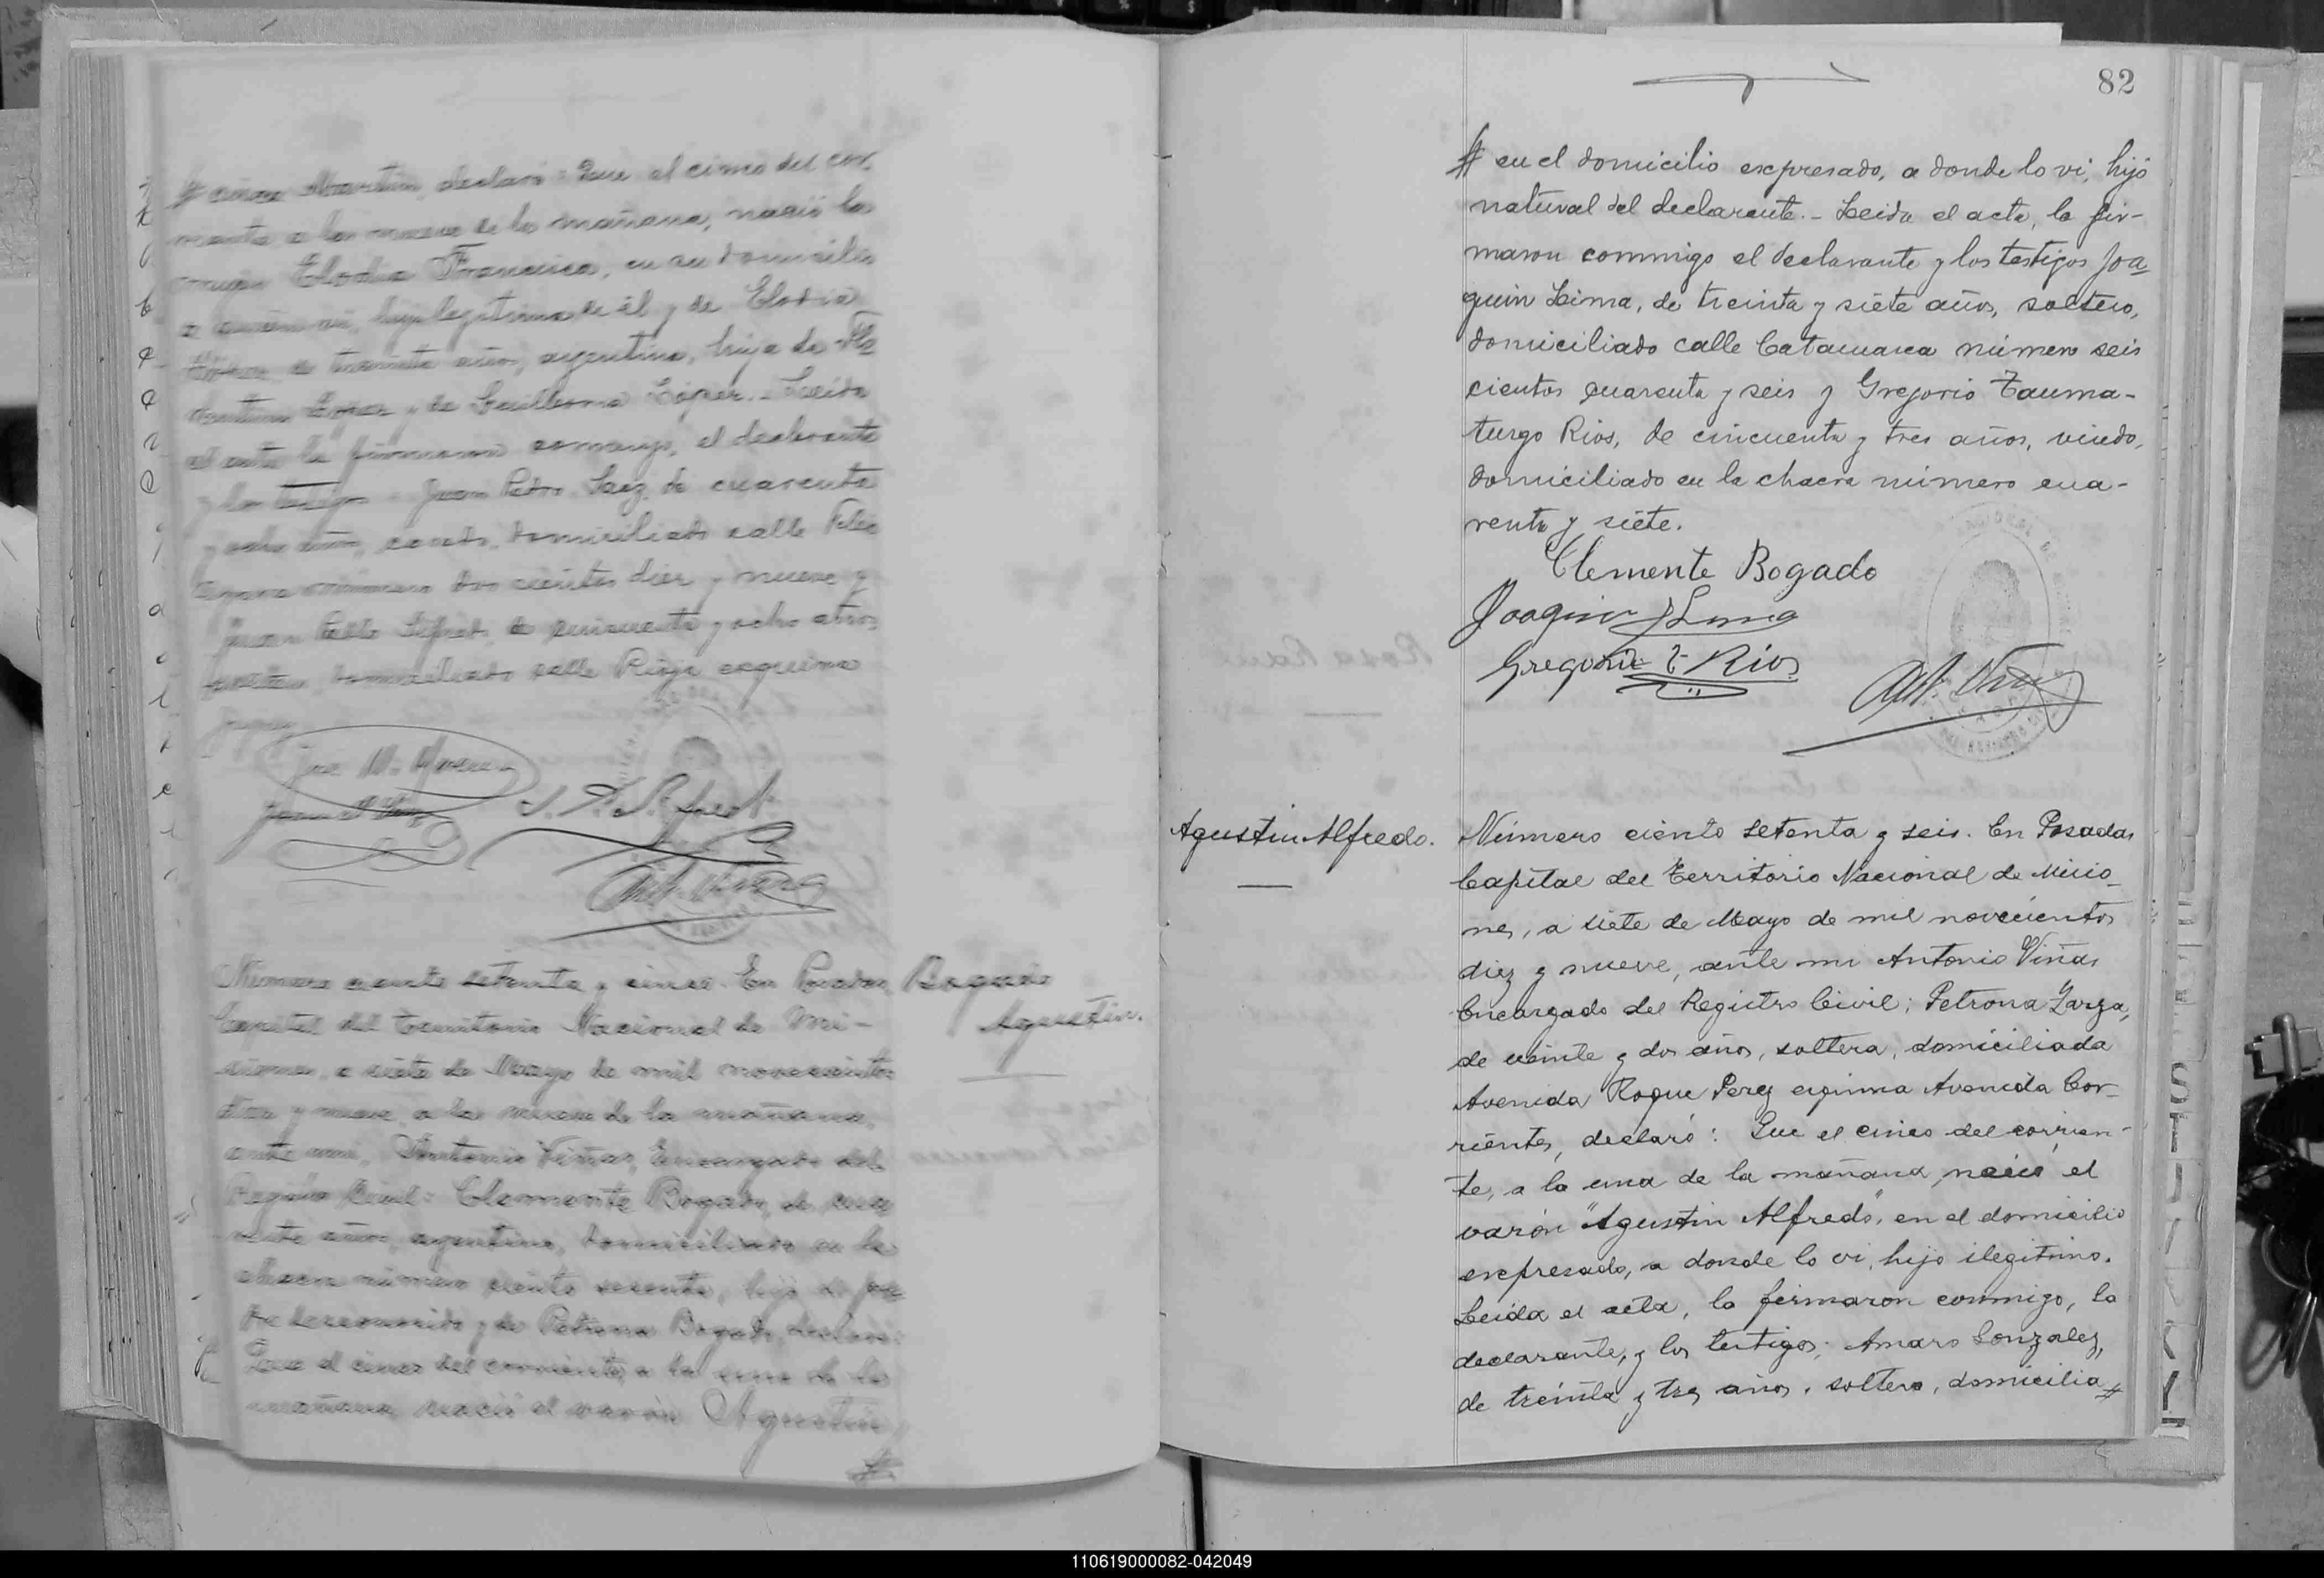 declaró: Que el cinco del cor
a las nueve de la mañana, nació la
Elodia Francisca, en su domicilio
hija legítima de él y de Elodia
de treinta años, argentina, hija de
Lopez y de Guillerma López. Leida
el acta la firmaron conmigo, el declarante
y los testigos Juan Pedro Saez, de cuarenta
y ocho años, casado, domiciliado calle
número dos cientos diez y nueve y
Juan de cincuenta y ocho años,
domiciliado calle Rioja esquina
Número ciento setenta y cinco. En Posadas,
Capital del Territorio Nacional de Mi-
siones, a siete de Mayo de mil novecientos
diez y nueve, a las nueve de la mañana,
ante mi, Antonio Viñas, Encargado del
Registro Civil: Clemente Bogado, de
años, argentino, domiciliado en la
chacra número ciento sesenta, hijo de pa
dre desconocido y de Petrona Bogado, declaró:
Que el cinco del corriente, a la una de la
mañana, nació el varón Agustin
Bogado
Agustin.
82
en el domicilio expresado, a donde lo vi, hijo
natural del declarante.- Leida el acta, la fir-
maron conmigo el declarante y los testigos Joa
quin Lima, de treinta y siete años, soltero,
domiciliado calle Catamarca número seis
cientos cuarenta y seis y Gregorio Tauma-
turgo Rios, de cincuenta y tres años, viudo,
domiciliado en la chacra número cua-
renta y siete.
Clemente Bogado
Joaquin Lima
Gregorio T. Rios
Ant. Viñas
Agustin Alfredo.
Número ciento setenta y seis. En Posadas
Capital del Territorio Nacional de Misio-
nes, a siete de Mayo de mil novecientos
diez y nueve, ante mi Antonio Viñas
Encargado del Registro Civil; Petrona Zarza,
de veinte y dos años, soltera, domiciliada
Avenida Roque Perez esquina Avenida Cor-
rientes, declaró: Que el cinco del corrien-
te, a la una de la mañana, nació el
varón "Agustin Alfredo", en el domicilio
expresado, a donde lo vi, hijo ilegitimo.
Leida el acta, la firmaron conmigo, la
declarante, y los testigos; Amaro Gonzalez,
de treinta y tres años, soltero, domicilia
110619000082-042049